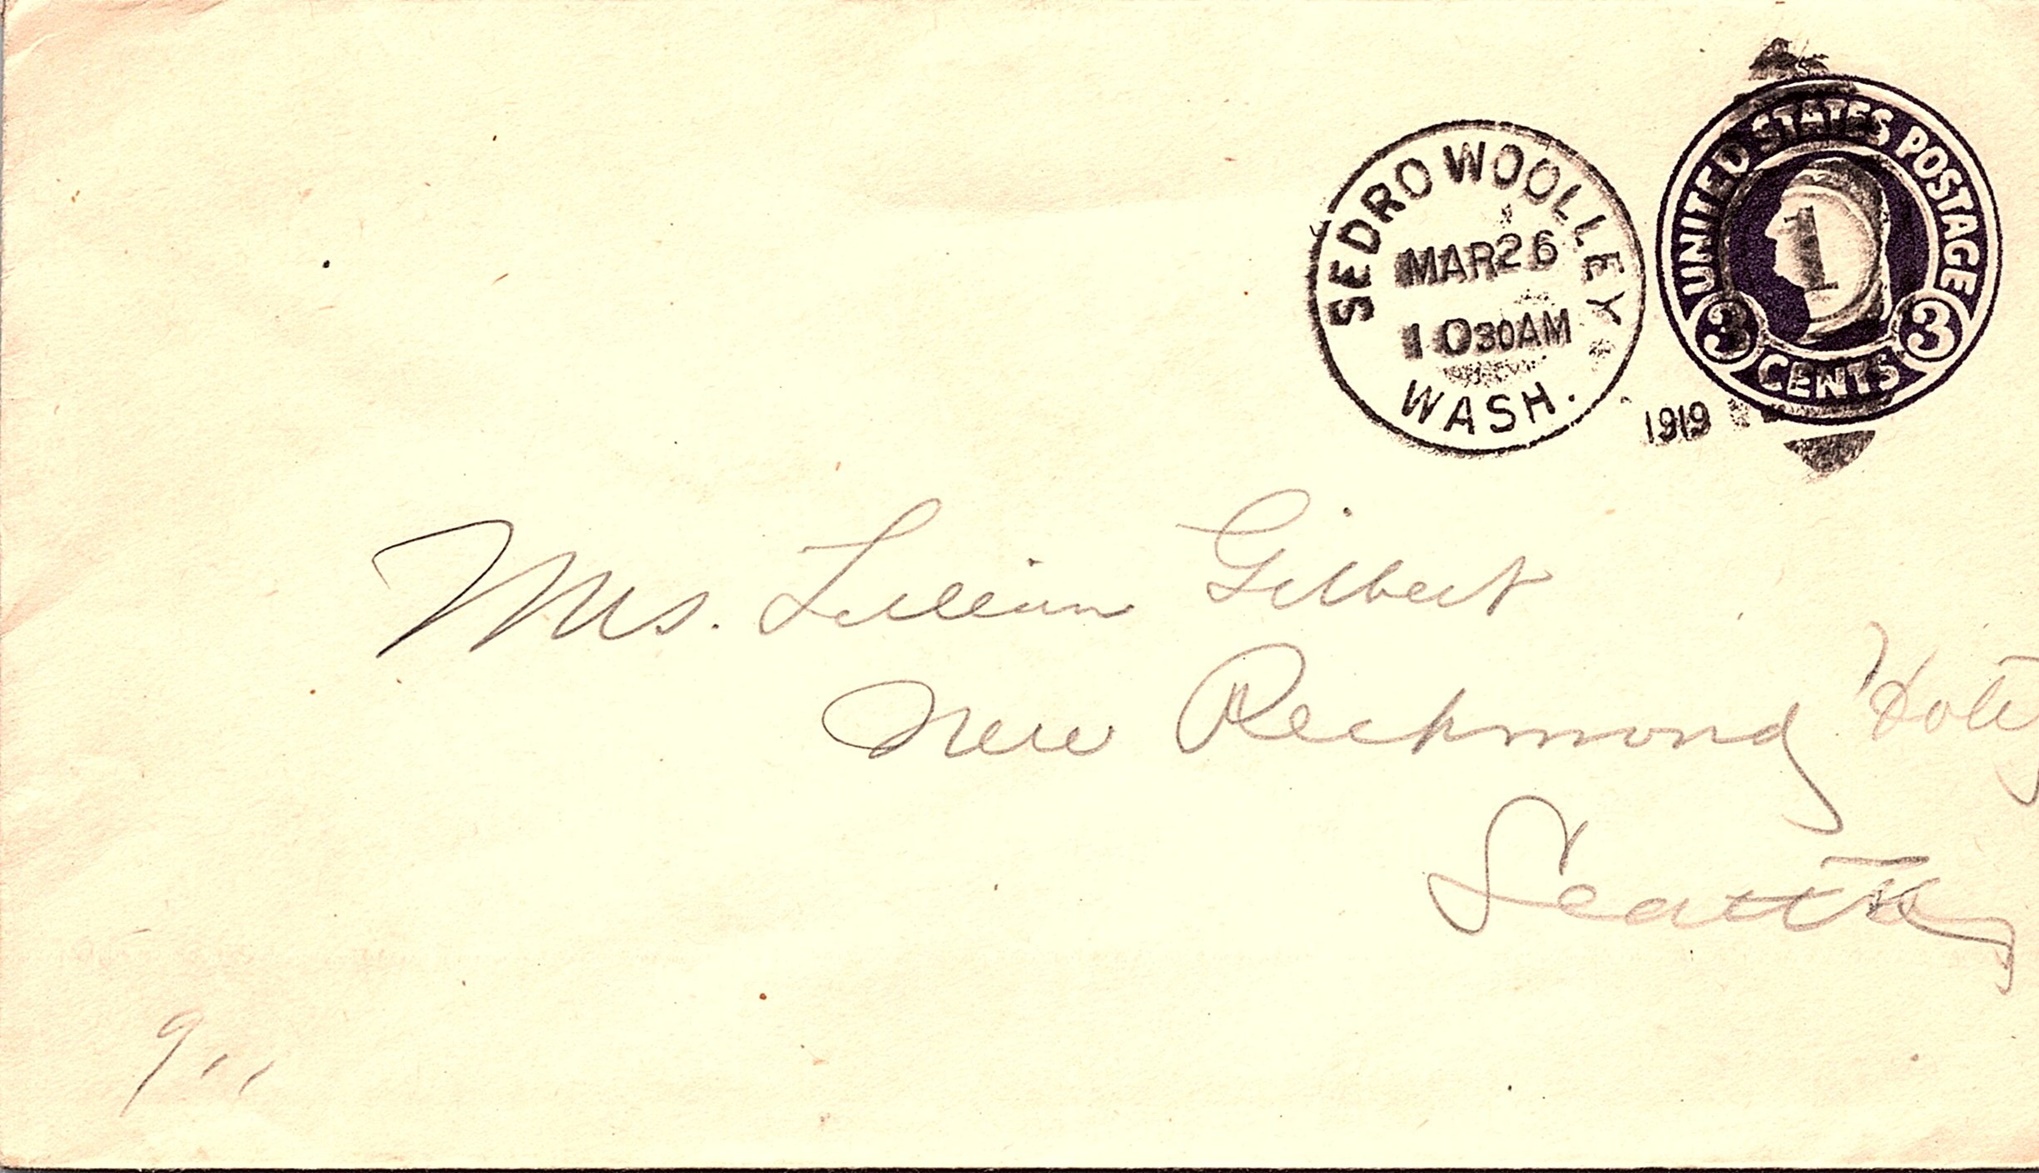 SEDRO WOOLLEY
MAR 26
10 30 AM
WASH.
1919
UNITED STATES POSTAGE
1
3 CENTS 3
Mrs. Lillian Gilbert
New Richmond Hotel
Seattle